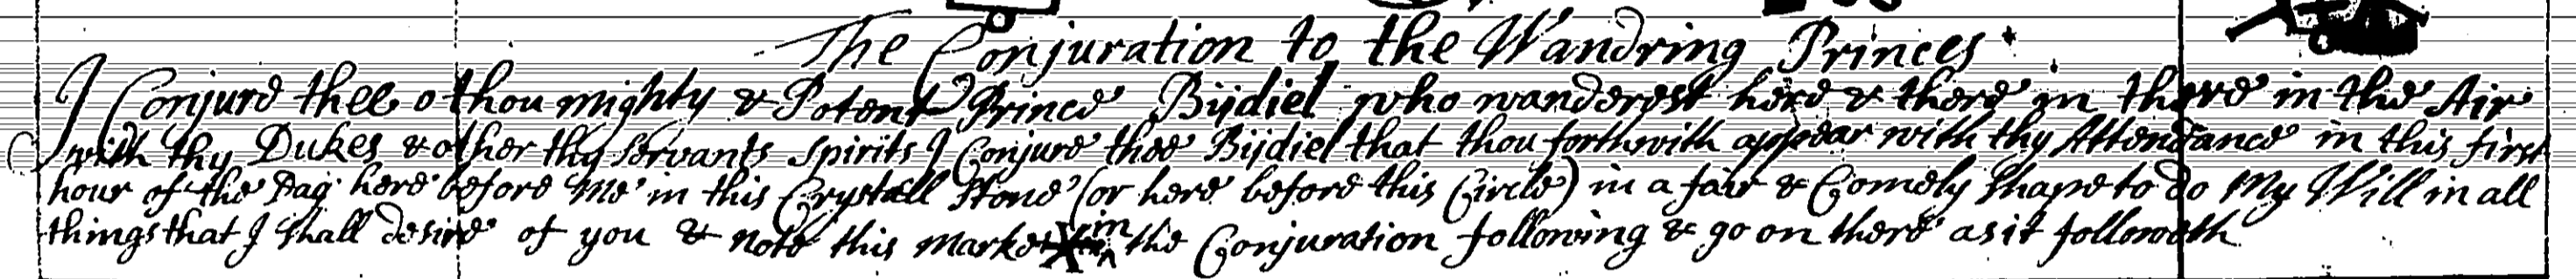 The Conjuration to the Wandring Princes.
I Conjure thee o thou mighty & Potent Prince Bijdiel who wanderest here & there in there in the Air
with thy Dukes & other thy servants spirits I Conjure thee Bijdiel that thou forthwith appear with thy Attendance in this first
hour of the Day here before Me in this Crystall Stone (or here before this Circle) in a fair & Comely shape to do My Will in all
things that I shall desire of you & note this marke in the Conjuration following & go on there as it followeth